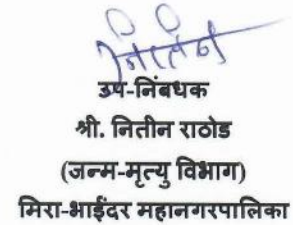 नितीन
उप-निंबधक
श्री. नितीन राठोड
(जन्म-मृत्यु विभाग)
मिरा-भाईंदर महानगरपालिका